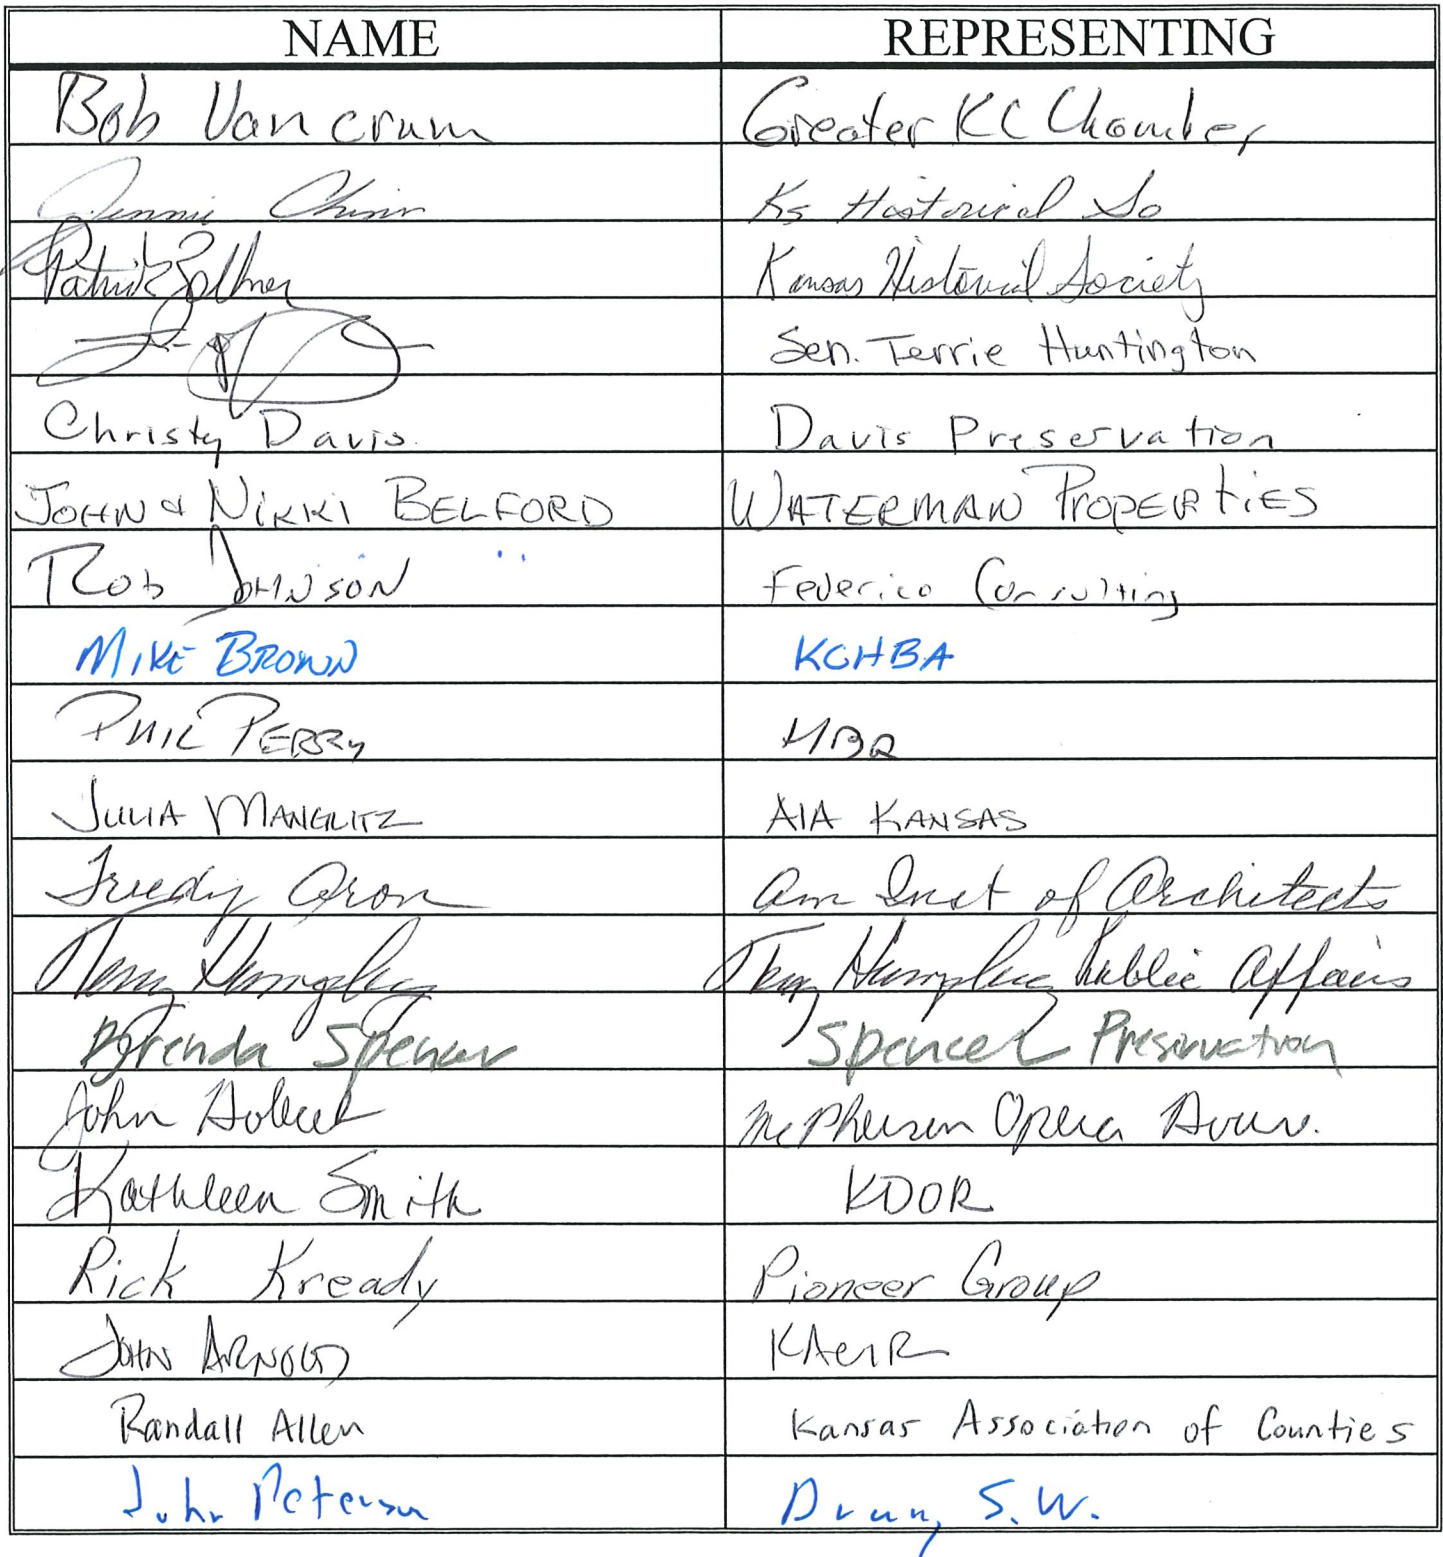 NAME REPRESENTING
Bob Vancrum Greater KC Chamber
Jennie Chinn Ks Historical So
Patrick Zollner Kansas Historical Society
Sen. Terrie Huntington
Christy Davis Davis Preservation
JOHN & NIKKI BELFORD WATERMAN PROPERTIES
Rob JOHNSON Federico Consulting
MIKE BROWN KCHBA
PHIL PERRY HBA
JULIA MANGLITZ AIA KANSAS
Trudy Aron Am Inst of Architects
Terry Humphrey Terry Humphrey Public Affairs
Brenda Spencer Spencer Preservation
John McPherson Opera
Kathleen Smith KDOR
Rick Kready Pioneer Group
JOHN ARNOLD
Randall Allen Kansas Association of Counties
John Peterson S.W.